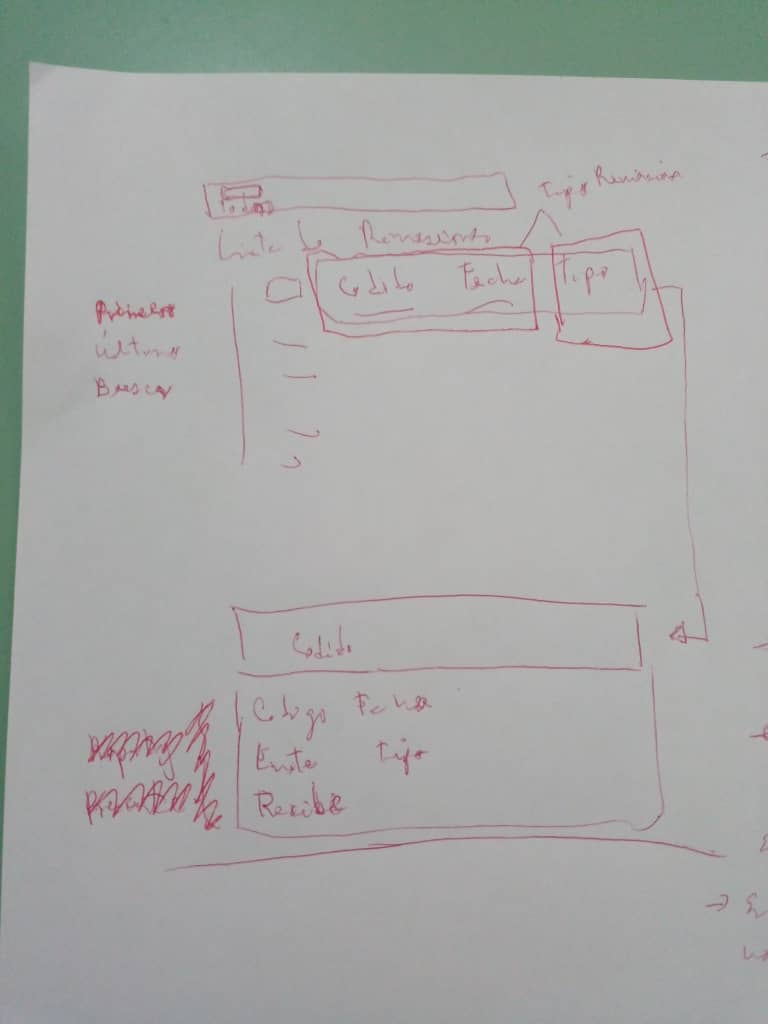 Todos
Tipo Remision
Lista de Remisiones
Codido Fecha Tipo
Primeros
Últimos
Buscar
Codido
Codigo Fecha
Envia Tipo
Recibe